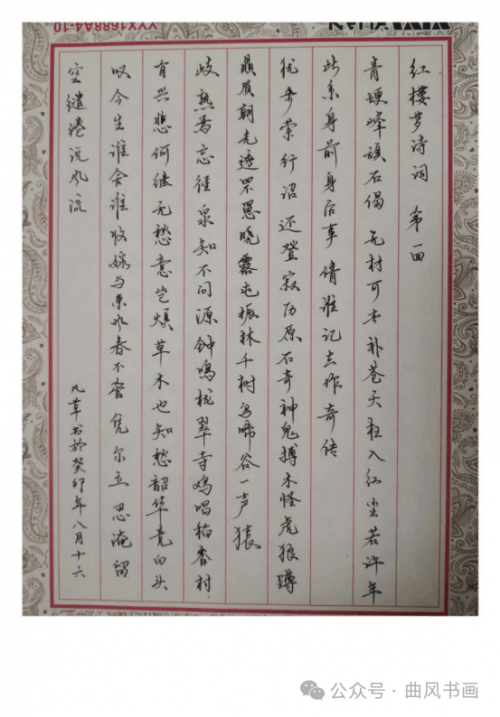 红楼梦诗词 第一回
青埂峰顽石偈 无材可去补苍天 枉入红尘若许年
此系身前身后事 倩谁记去作奇传
犹步萦 还登寂历原石奇神鬼搏木怪虎狼蹲
赑屃朝光透罘罳晓露屯振林千树鸟啼谷一声猿
歧熟焉忘径泉知不问源钟鸣栊翠寺鸡唱稻香村
有兴悲何继无愁意岂烦草木也知愁韶华竟白头
叹今生谁舍谁收嫁与东风春不管凭尔去忍淹留
空缱绻说风流
书于癸卯年八月十六
公众号·曲风书画